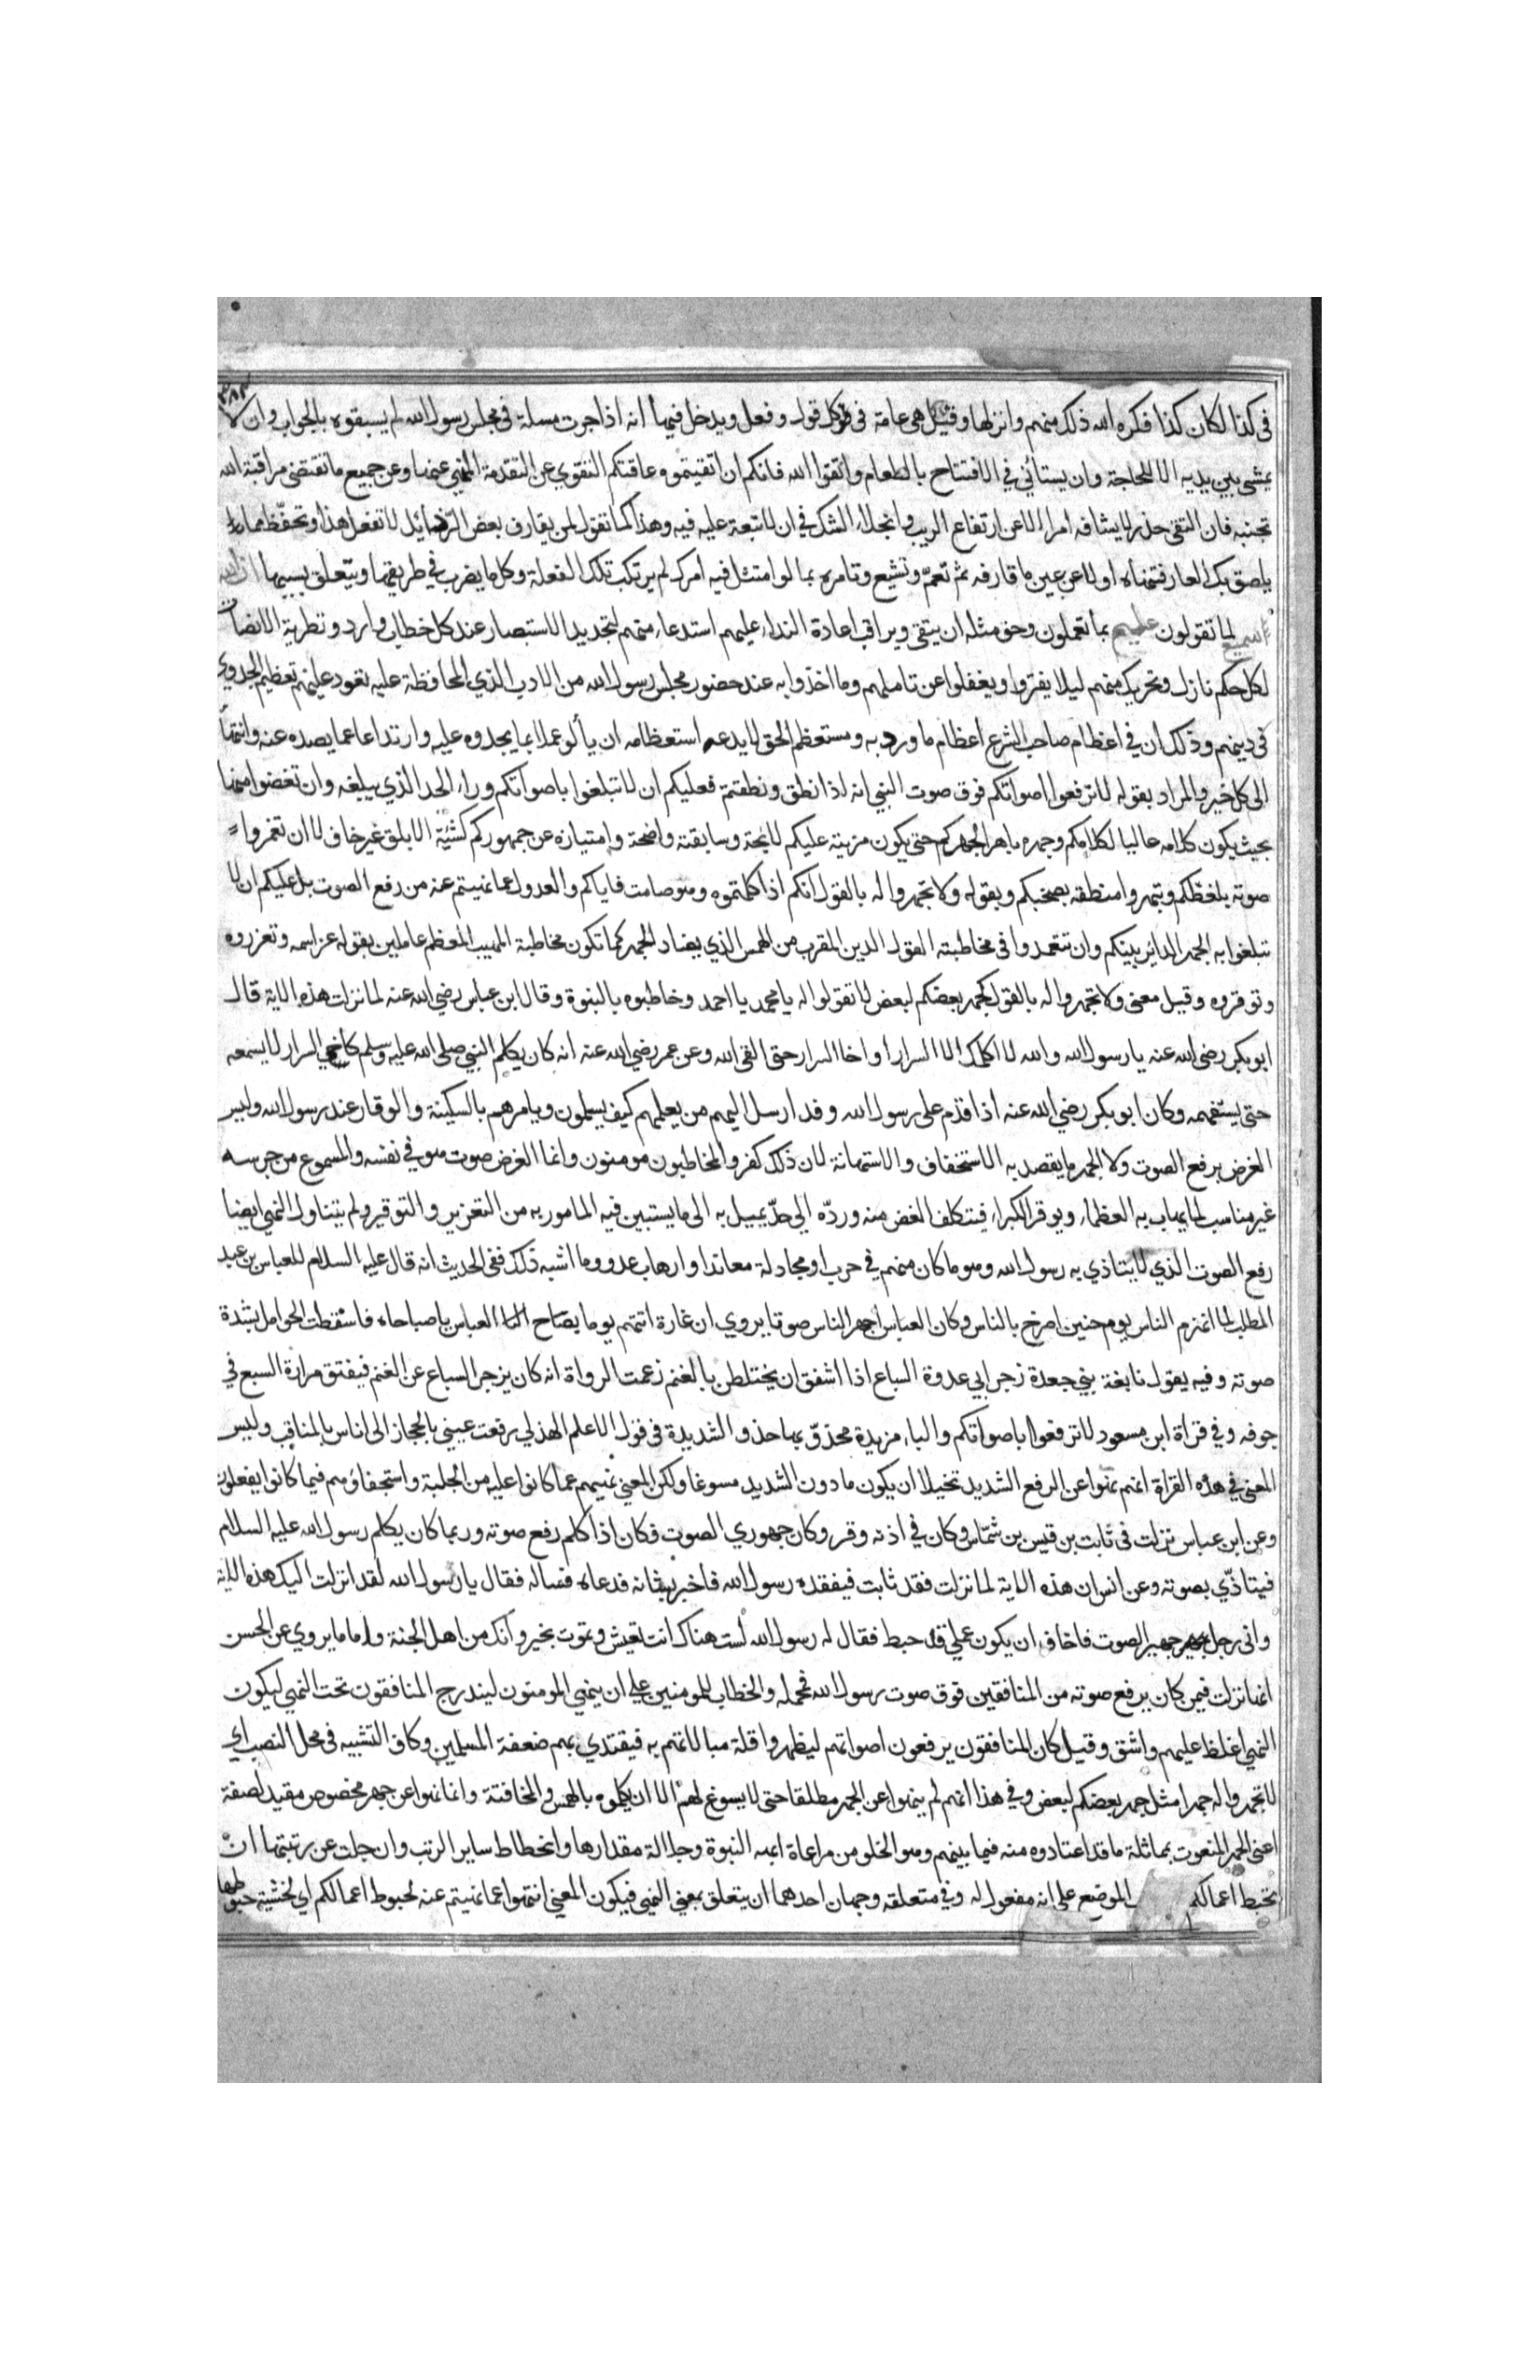 ٣٨٢
فى كذا لكان كذا فكره الله ذلك منهم وانزلها وقيل هى عامة فى كل قول وفعل ويدخل فيها انه اذا جرت مسلة فى مجلس رسول الله لم يسبقوه بالجواب وان لا
يمشى بين يديه الا للحاجة وان يستأني في الافتتاح بالطعام واتقوا الله فانكم ان اتقيتموه عاقتكم التقوي عن التقدمة المنهي عنها وعن جميع ما تقتضى مراقبة الله
تجنبه فان التقى حذر لا يشافه امرا الا عن ارتفاع الريب وانجلاء الشك في ان لا تبعة عليه فيه وهذا كما تقول لمن يقارف بعض الرذائل لا تفعل هذا وتحفّظ مما
يلصق بك العار فتنهاه اولا عن عين ما قارفه ثم تعمّ وتشيع وتامره بما لو امتثل فيه امرك لم يرتكب تلك الفعلة وكل ما يضرب في طريقها ويتعلق بسببها ان الله
سميع لما تقولون عليم بما تعملون وحق مثله ان يتقى ويراقب اعادة النداء عليهم استدعاء منهم لتجديد الاستبصار عند كل خطاب وارد وتطرية الانصات
لكل حكم نازل وتحريك منهم ليلا يفتروا ويغفلوا عن تاملهم وما اخذوا به عند حضور مجلس رسول الله من الادب الذي المحافظة عليه تعود عليهم بعظيم الجدوي
فى دينهم وذلك ان في اعظام صاحب الشرع اعظام ما ورد به ومستعظم الحق لا يدعه استعظامه ان يألو عملا بما يحدوه عليه وارتداعا عما يصده عنه وانتهاء
الى كل خير والمراد بقوله لا ترفعوا اصواتكم فوق صوت النبي انه اذا نطق ونطقتم فعليكم ان لا تبلغوا باصواتكم وراء الحد الذي يبلغه وان تغضوا منها
بحيث يكون كلامه عاليا لكلامكم وجهره باهرا لجهركم حتى يكون مزيته عليكم لائحة وسابقته واضحة وامتيازه عن جمهوركم كشية الابلق غير خاف لا ان تغمروا
صوته بلغظكم وتبهروا منطقه بصخبكم وبقوله ولا تجهروا له بالقول انكم اذا كلمتموه وهو صامت فاياكم والعدول عما نهيتم عنه من رفع الصوت بل عليكم ان لا
تبلغوا به الجهر الدائر بينكم وان تتعمدوا فى مخاطبته القول اللين المقرب من الهمس الذي يضاد الجهر كما تكون مخاطبة المهيب المعظم عاملين بقوله عز اسمه وتعزروه
وتوقروه وقيل معنى ولا تجهروا له بالقول كجهر بعضكم لبعض لا تقولوا له يا محمد يا احمد وخاطبوه بالنبوة وقال ابن عباس رضي الله عنه لما نزلت هذه الاية قال
ابو بكر رضى الله عنه يا رسول الله والله لا اكلمك الا السرار او اخا السرار حتى القى الله وعن عمر رضي الله عنه انه كان يكلم النبي صلى الله عليه وسلم كاخي السرار لا يسمعه
حتى يستفهمه وكان ابو بكر رضي الله عنه اذا قدم على رسول الله وفد ارسل اليهم من يعلمهم كيف يسلمون ويامرهم بالسكينة والوقار عند رسول الله وليس
الغرض برفع الصوت ولا الجهر ما يقصد به الاستخفاف والاستهانة لان ذلك كفر والمخاطبون مومنون وانما الغرض صوت هو في نفسه والمسموع من جرسه
غير مناسب لما يهاب به العظماء ويوقر الكبراء فيتكلف الغض منه وردّه الي حدّ يميل به الى ما يستبين فيه المامور به من التعزير والتوقير ولم يتناول النهي ايضا
رفع الصوت الذي لا يتاذي به رسول الله وهو ما كان منهم في حرب او مجادلة معاند او ارهاب عدو وما اشبه ذلك ففى الحديث انه قال عليه السلام للعباس بن عبد
المطلب لما انهزم الناس يوم حنين اصرخ بالناس وكان العباس اجهر الناس صوتا يروي ان غارة اتتهم يوما فصاح العباس يا صباحاه فاسقطت الحوامل لشدة
صوته وفيه يقول نابغة بني جعدة زجر ابي عروة السباع اذا اشفق ان يختلطن بالغنم زعمت الرواة انه كان يزجر السباع عن الغنم فيفتق مرارة السبع في
جوفه وفي قراة ابن مسعود لا ترفعوا باصواتكم والباء مزيدة محذوّ بها حذو الشديدة فى قول الاعلم الهذلي رفعت عيني بالحجاز الى اناس بالمناقب وليس
المعنى في هذه القراة انهم نهوا عن الرفع الشديد تخيلا ان يكون ما دون الشديد مسوغا ولكن المعني نهيهم عما كانوا عليه من الجلبة واستجفاؤهم فيما كانوا يفعلون
وعن ابن عباس نزلت فى ثابت بن قيس بن شمّاس وكان في اذنه وقر وكان جهوري الصوت فكان اذا كلم رفع صوته وربما كان يكلم رسول الله عليه السلام
فيتاذّي بصوته وعن انس ان هذه الاية لما نزلت فقد ثابت فيفقده رسول الله فاخبر بشانه فدعاه فساله فقال يا رسول الله لقد انزلت اليك هذه الاية
وانى رجل جهير الصوت فاخاف ان يكون عملي قد حبط فقال له رسول الله لست هناك انت تعيش وتموت بخير وانك من اهل الجنة واما ما يروي عن الحسن
انها نزلت فيمن كان يرفع صوته من المنافقين فوق صوت رسول الله فمحمله والخطاب للمومنين علي ان ينهي المومنون ليندرج المنافقون تحت النهي ليكون
النهي اغلظ عليهم واشق وقيل كان المنافقون يرفعون اصواتهم ليظهروا قلة مبالاتهم به فيقتدي بهم ضعفة المسلمين وكاف التشبيه فى محل النصب اي
لا تجهروا له جهرا مثل جهر بعضكم لبعض وفي هذا انهم لم ينهوا عن الجهر مطلقا حتى لا يسوغ لهم الا ان يكلموه بالهمس والمخافتة وانما نهوا عن جهر مخصوص مقيد بصفة
اعنى الجهر المنعوت بمماثلة ما قد اعتادوه منه فيما بينهم وهو الخلو من مراعاة ابهة النبوة وجلالة مقدارها وانحطاط ساير الرتب وان جلت عن رتبتها ان
تحبط اعمالكم الموضع على انه مفعول له وفي متعلقه وجهان احدهما ان يتعلق بمعني النهي فيكون المعني انتهوا عما نهيتم عنه لحبوط اعمالكم اي لخشية حبوطها